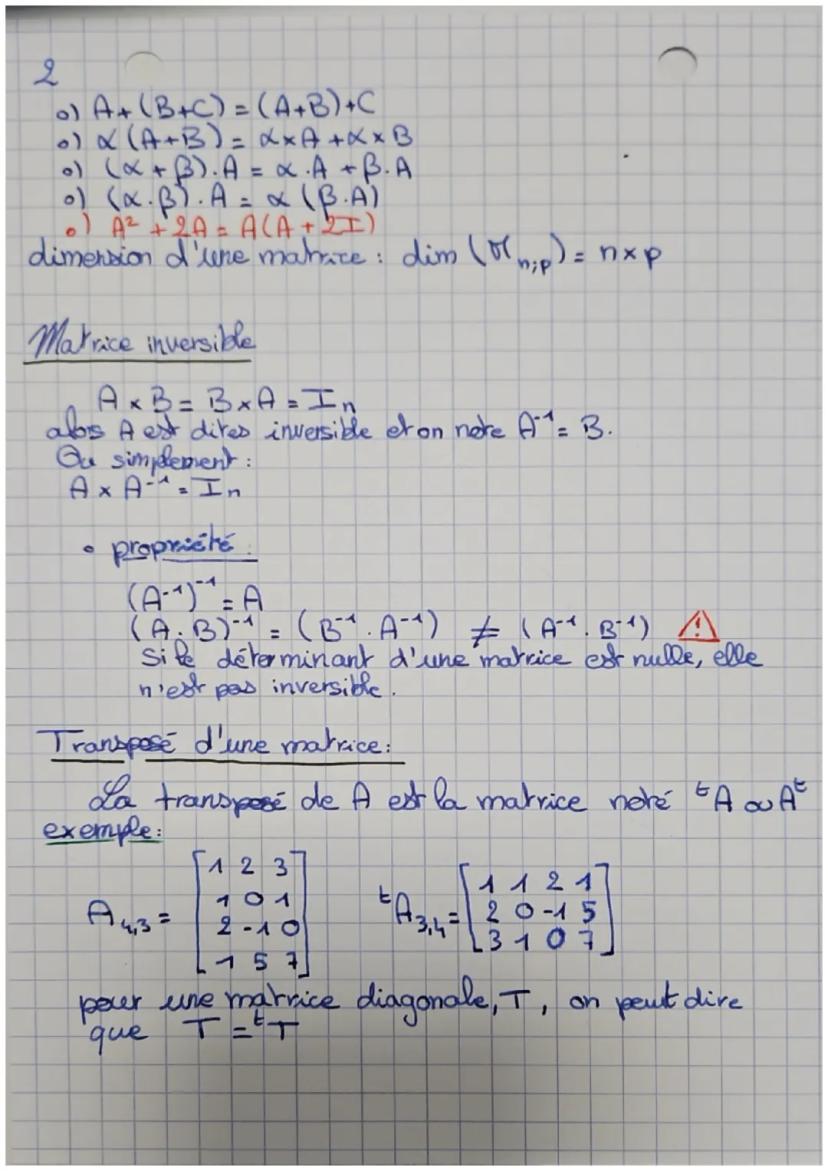 2
o) A+(B+C) = (A+B)+C
o) α(A+B) = α×A + α×B
o) (α + β).A = α.A + β.A
o) (α.β).A = α(β.A)
o) A² + 2A = A(A + 2I)
dimension d'une matrice : dim (M n;p) = n×p
Matrice inversible
A × B = B × A = In
alors A est dites inversible et on note A⁻¹ = B.
Ou simplement :
A × A⁻¹ = In
• propriété :
(A⁻¹)⁻¹ = A
(A.B)⁻¹ = (B⁻¹.A⁻¹) ≠ (A⁻¹.B⁻¹) ⚠
Si le déterminant d'une matrice est nulle, elle
n'est pas inversible.
Transposé d'une matrice :
La transposé de A est la matrice noté ᵗA ou Aᵗ
exemple :
A4,3 = [1 2 3
1 0 1
2 -1 0
1 5 7]
ᵗA3,4 = [1 1 2 1
2 0 -1 5
3 1 0 7]
pour une matrice diagonale, T, on peut dire
que T = ᵗT